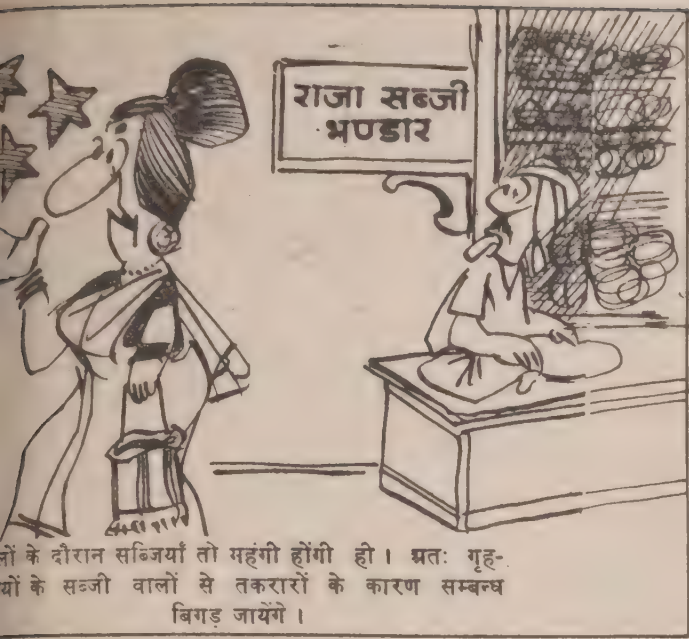 राजा सब्जी
भण्डार
लों के दौरान सब्जियाँ तो महंगी होंगी ही । अतः गृह-
यों के सब्जी वालों से तकरारों के कारण सम्बन्ध
बिगड़ जायेंगे ।